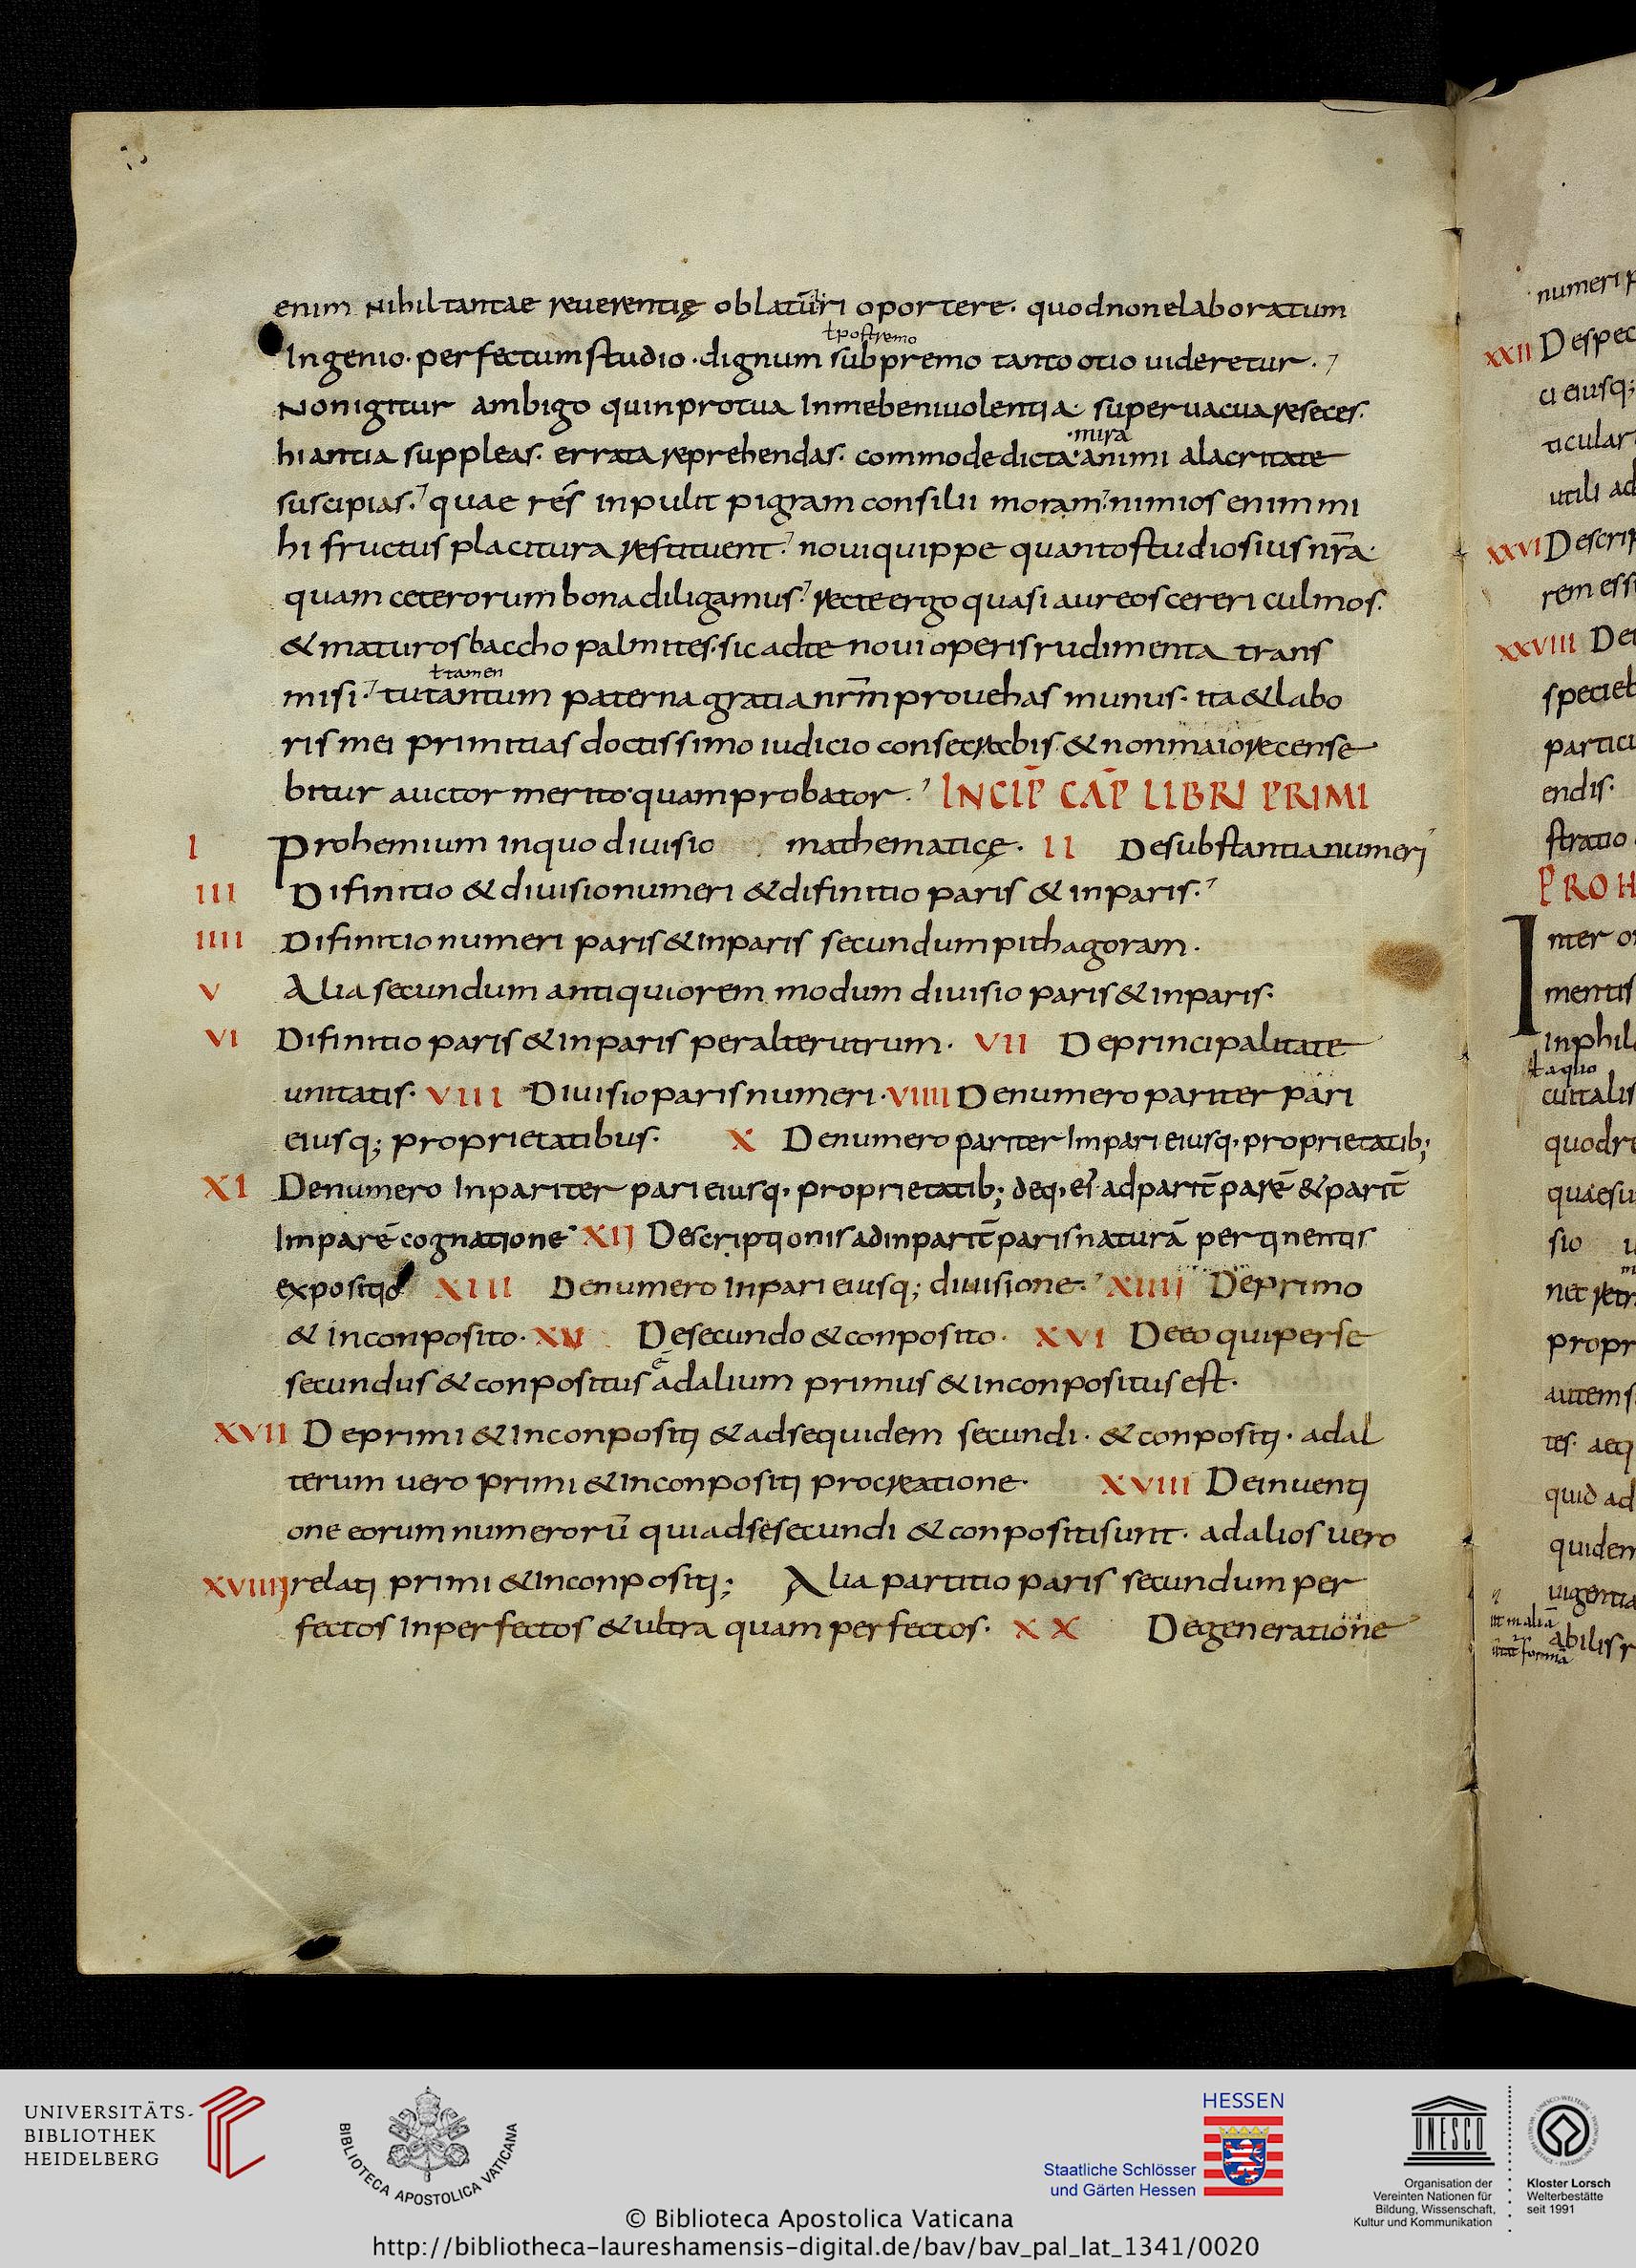 enim nihil tantae reuerentię oblatūri oportere. quod non elaboratum
ł postremo
Ingenio. perfectum studio. dignum subpremo tanto otio uideretur.
Non igitur ambigo quin pro tua In me beniuolentia. superuacua reseces.
mira
hiantia suppleas. errata reprehendas. commode dicta animi alacritate
suscipias. quae rés inpulit pigram consilii moram. nimios enim mi
hi fructus placitura restituent. noui quippe quanto studiosius nr̄a.
quam ceterorum bona diligamus. recte ergo quasi aureos cereri culmos.
& maturos baccho palmites. sic ad te noui operis rudimenta trans
ł tamen
misi. tu tantum paterna gratia nrm̄ prouehas munus. ita & labo
ris mei primitias doctissimo iudicio consecrabis & non maiore cense
bitur auctor merito quam probator. INCIP̄ CAP̄ LIBRI PRIMI
I Prohemium in quo diuisio mathematicę. II De substantia numeri
III Difinitio & diuisio numeri & difinitio paris & inparis.
IIII Difinitio numeri paris & Inparis secundum pithagoram.
V Alia secundum antiquiorem modum diuisio paris & inparis.
VI Difinitio paris & In paris per alterutrum. VII De principalitate
unitatis. VIII Diuisio paris numeri. VIIII De numero pariter pari
eiusq; proprietatibus. X De numero pariter Impari eiusq, proprietatib;
XI De numero Inpariter pari eiusq, proprietatib; deq, ei' ad parit̄ parē & parit̄
Imparē cognatione XII Descriptionis ad inparit̄ paris naturā pertinentis
expositio XIII De numero Inpari eiusq; diuisione. XIIII De primo
& inconposito. XV De secundo & conposito. XVI De eo qui per se
secundus & conpositus ē ad alium primus & inconpositus est.
XVII De primi & Inconpositi & ad se quidem secundi. & conpositi. ad al
terum uero primi & Inconpositi procreatione. XVIII De inuenti
one eorum numerorū qui ad se secundi & conpositi sunt. ad alios uero
XVIIII relati primi & Inconpositi; Alia partitio paris secundum per
fectos Inperfectos & ultra quam perfectos. XX De generatione
numeri p
XXII De spec
ci eiusq;
ticular
utili ad
XXVI Descrip
rem essi
XXVIII De
specieb
particu
endis.
stratio
PROH
Inter o
mentis
Inphil
ł a quo
cui talis
quod re
quaesu
sio
nec retr
propr
autem s
tes. aeq
quid ad
quidem
uigentia
abilis r
UNIVERSITÄTS-
BIBLIOTHEK
HEIDELBERG
BIBLIOTECA APOSTOLICA VATICANA
HESSEN
Staatliche Schlösser
und Gärten Hessen
UNESCO
Organisation der
Vereinten Nationen für
Bildung, Wissenschaft,
Kultur und Kommunikation
Kloster Lorsch
Welterbestätte
seit 1991
© Biblioteca Apostolica Vaticana
http://bibliotheca-laureshamensis-digital.de/bav/bav_pal_lat_1341/0020